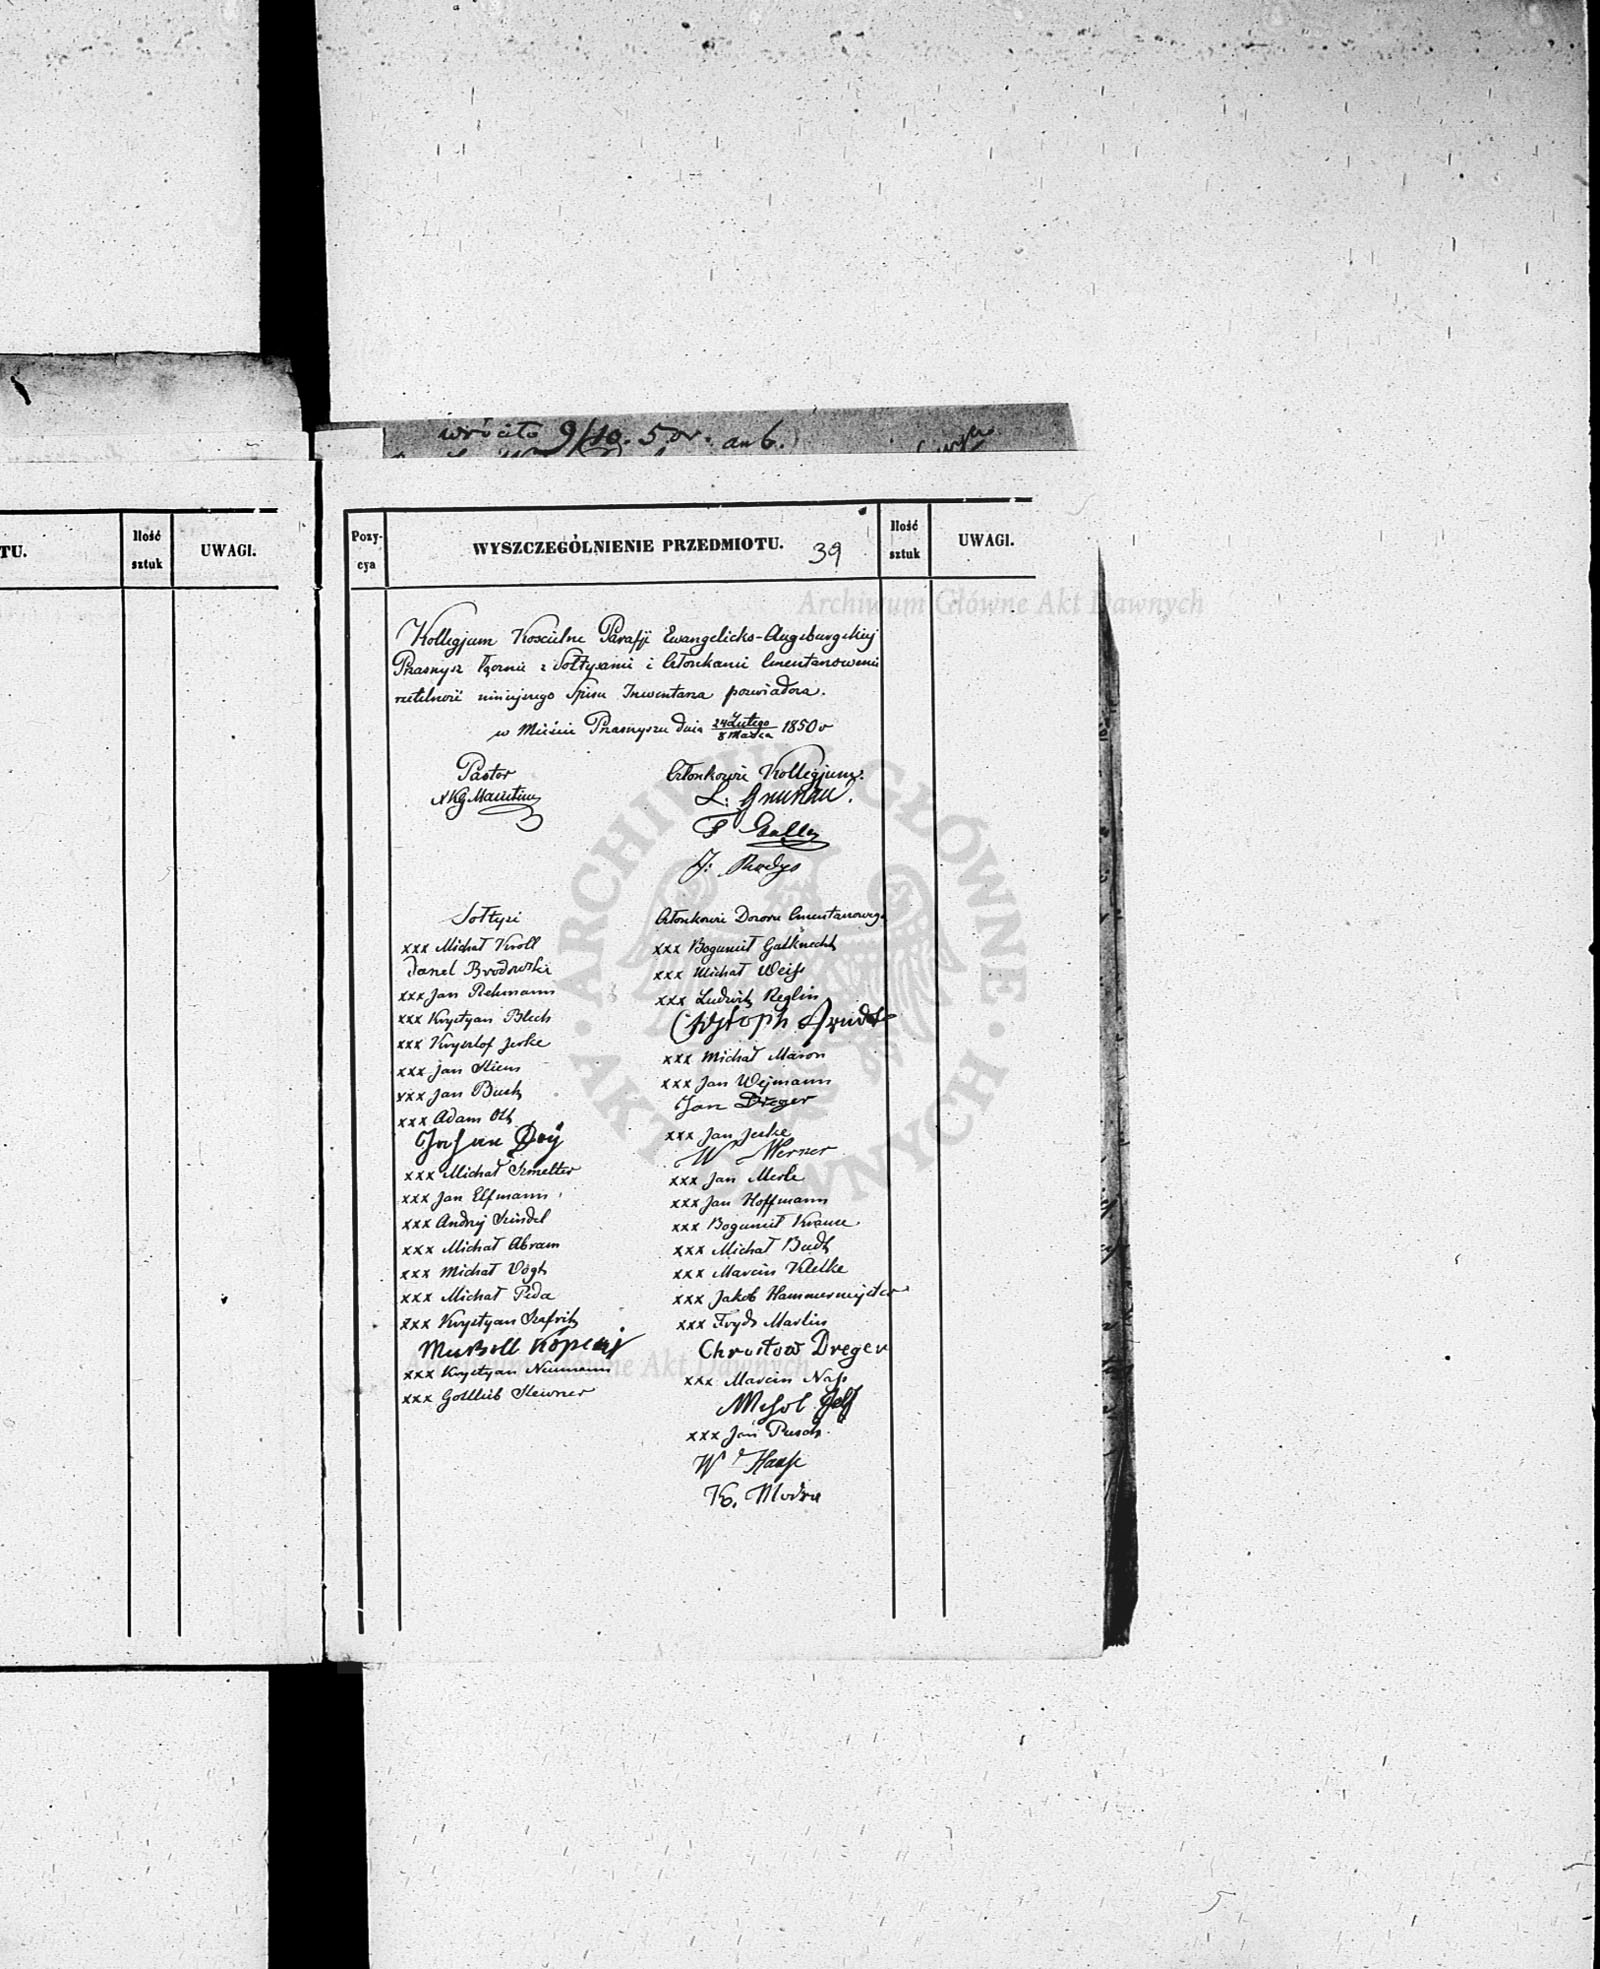 wróciło 9/10. 5 or. an 6.
TU.
Ilość
sztuk
UWAGI.
Pozy-
cya
WYSZCZEGÓLNIENIE PRZEDMIOTU.
39
Ilość
sztuk
UWAGI.
Archiwum Główne Akt Dawnych
Kollegjum Koscielne Parafji Ewangelicko-Augsburgskiej
Prasnysz łącznie z Sołtysami i Członkami Cmentarowemi
rzetelność niniejszego Spisu Inwentarza poświadcza.
w Mieście Prasnyszu dnia 24 Lutego / 8 Marca 1850 r
Pastor
Członkowie Kollegjum.
L. Grunau.
J. Radys
Sołtysi
Członkowie Dozoru Cmentarowego
xxx Michał Kroll
xxx Bogumił Gutknecht
Danel Brodowski
xxx Michał Weiss
xxx Jan Rehmann
xxx Ludwik Reglin
xxx Krystyan Blech
xxx Krysztof Jeske
xxx Michał Maron
xxx Jan
xxx Jan Wejmann
xxx Jan Buch
Jan Dreger
xxx Adam Ott
xxx Jan Jeske
Johan Doÿ
W Werner
xxx Michał Szmelter
xxx Jan Meske
xxx Jan Elfmann
xxx Jan Hoffmann
xxx Andrzej Szindel
xxx Bogumił Krause
xxx Michał Abram
xxx Michał Budt
xxx Michał Vogt
xxx Marcin Klelke
xxx Michał Peda
xxx Jakob Hammermejster
xxx Krystyan Szefrik
xxx Fryd Marlin
Chrostow Dreger
xxx Krystyan Neumann
xxx Marcin Nass
xxx Gottlieb Steivner
xxx Jan Pusch
W Haase
K. Modra
Archiwum Główne Akt Dawnych
ARCHIWUM GŁÓWNE AKT DAWNYCH